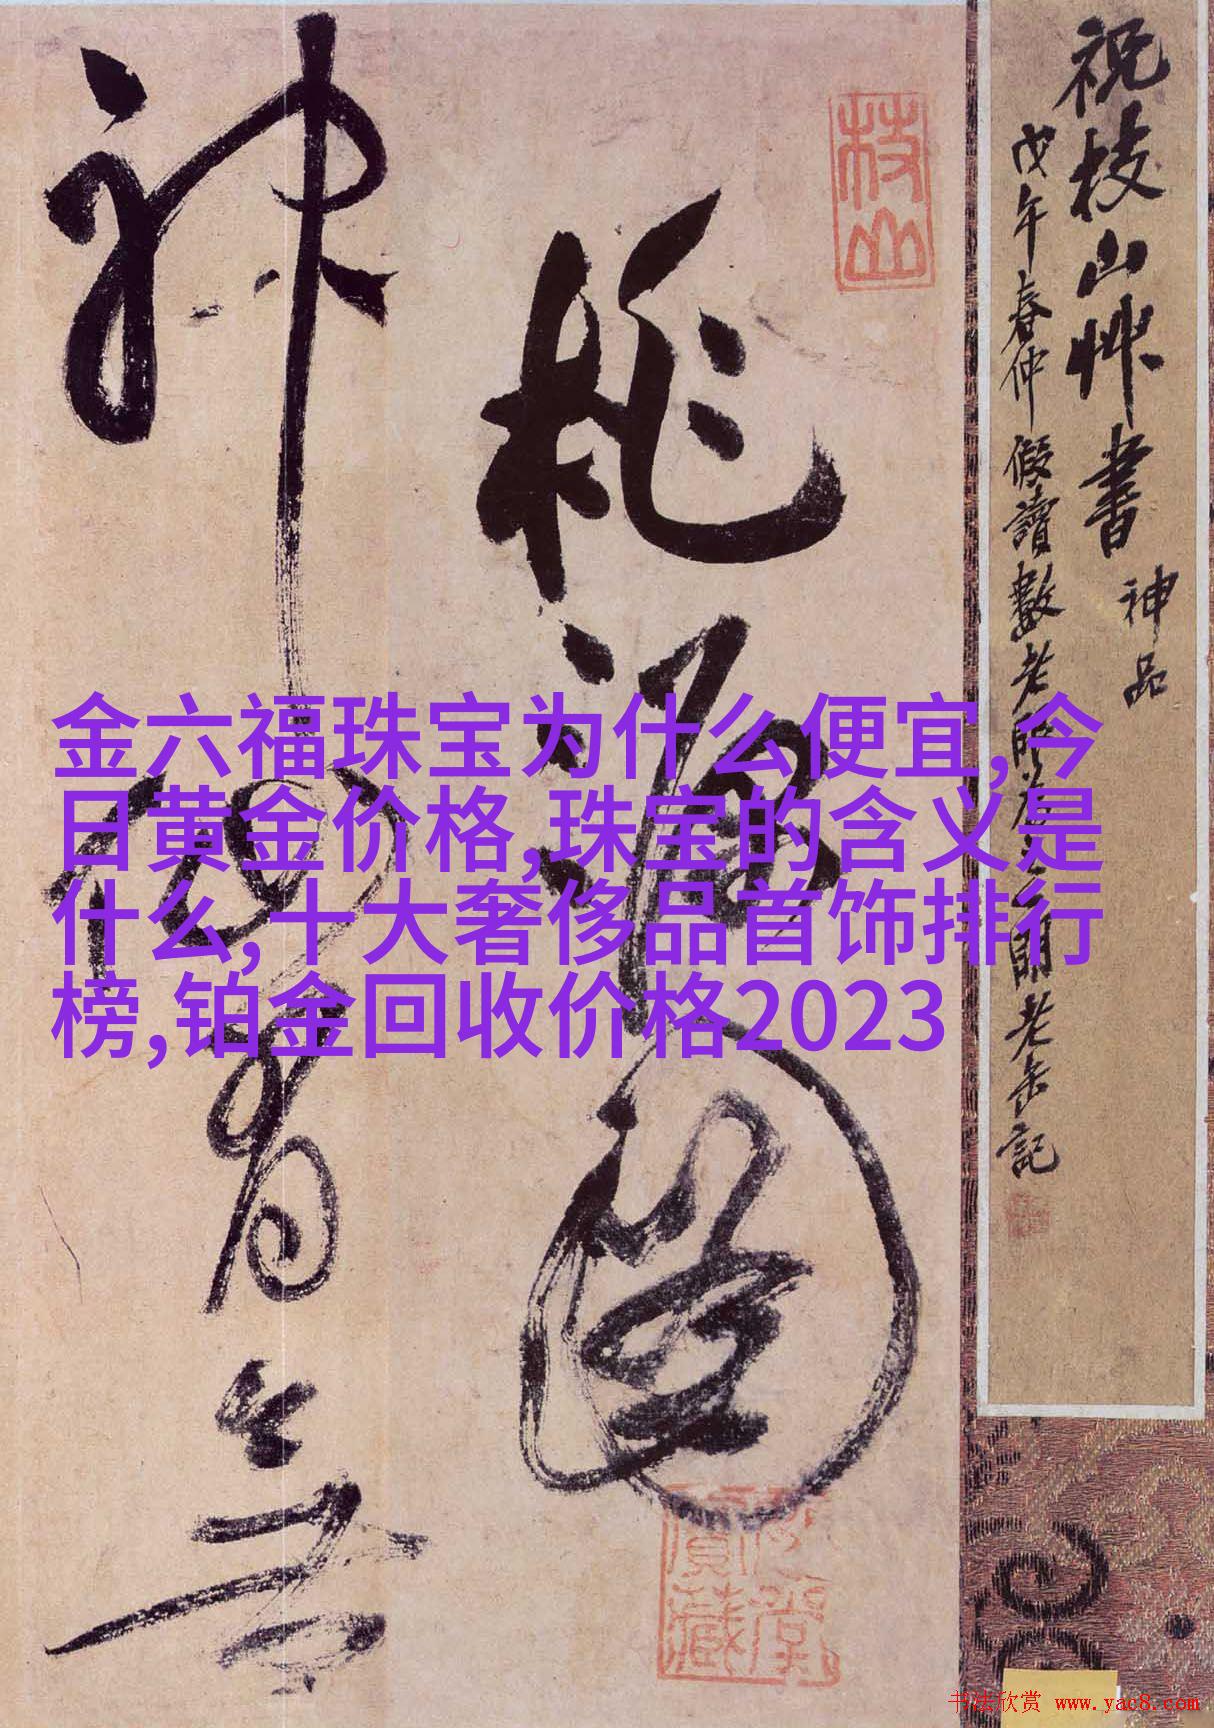 祝枝山艸書 神品
戊午春仲假讀數老
老缶記
枝山
桃源圖
神仙有無
金六福珠宝为什么便宜,今
日黄金价格,珠宝的含义是
什么,十大奢侈品首饰排行
榜,铂金回收价格2023
寶藏
书法欣赏 www.yac8.com